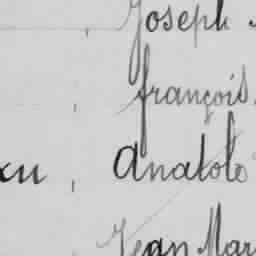 Joseph
, françois
, Anatole
Jean Mar